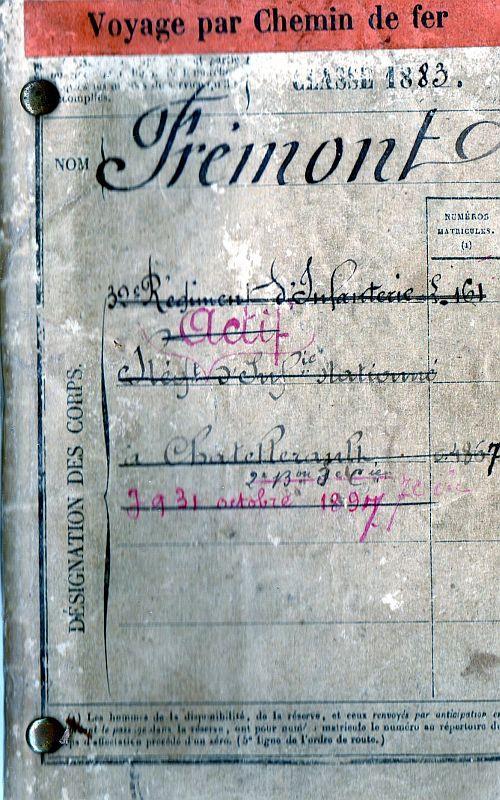 Voyage par Chemin de fer
complies.
CLASSE 1883.
NOM Frémont
NUMÉROS
MATRICULES.
(1)
DÉSIGNATION DES CORPS.
39e Régiment d'Infanterie L. 161
Actif
Régt d'Infie Stationné
à Chatellerault
2e Bon 3e Cie
7 e cie
J 9 31 octobre 1897
Les hommes de la disponibilité, de la réserve, et ceux renvoyés par anticipation
le passage dans la réserve, ont pour numéro matricule le numéro au répertoire
d'association précédé d'un zéro. (5e ligne de l'ordre de route.)